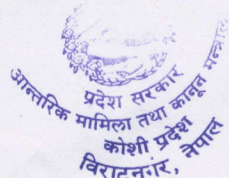 प्रदेश सरकार
आन्तरिक मामिला तथा कानून
कोशी प्रदेश
विराटनगर, नेपाल